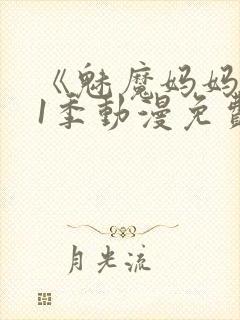 《魅魔妈妈
1季動漫免費
月光流